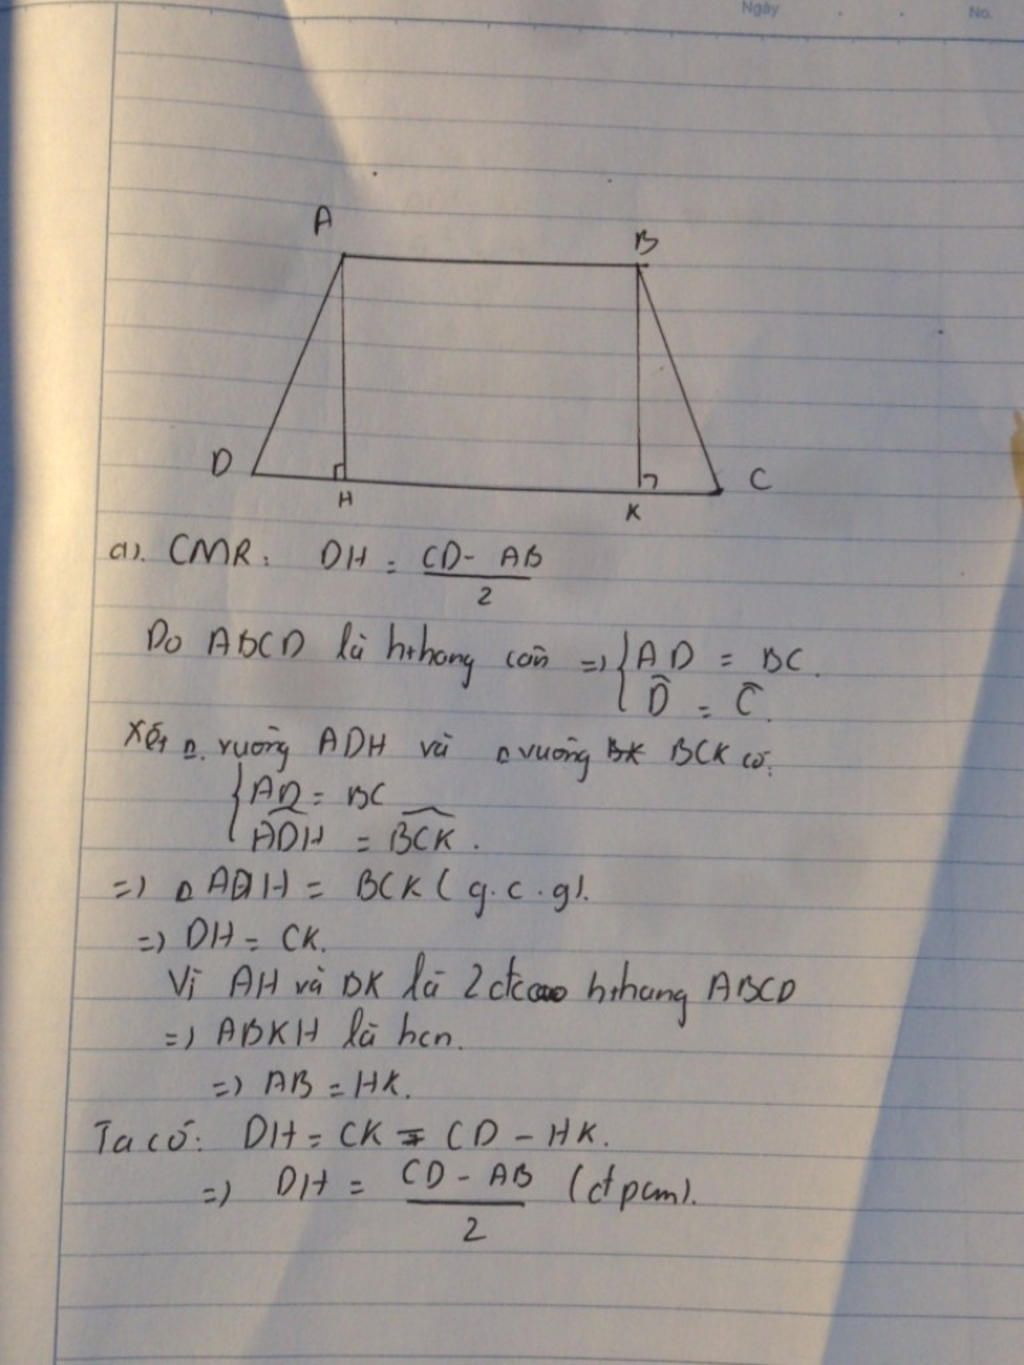 Ngày
No.
A
B
D
H
K
C
a). CMR: DH = CD - AB
2
Do ABCD là hthang cân => { AD = BC.
D̂ = Ĉ.
Xét Δ. vuông ADH và Δ vuông BCK có:
{ AD = BC
ADH = BCK.
=> Δ ADH = BCK ( g.c.g).
=> DH = CK.
Vì AH và BK là 2 đcao hthang ABCD
=> ABKH là hcn.
=> AB = HK.
Ta có: DH = CK = CD - HK.
=> DH = CD - AB (đpcm).
2